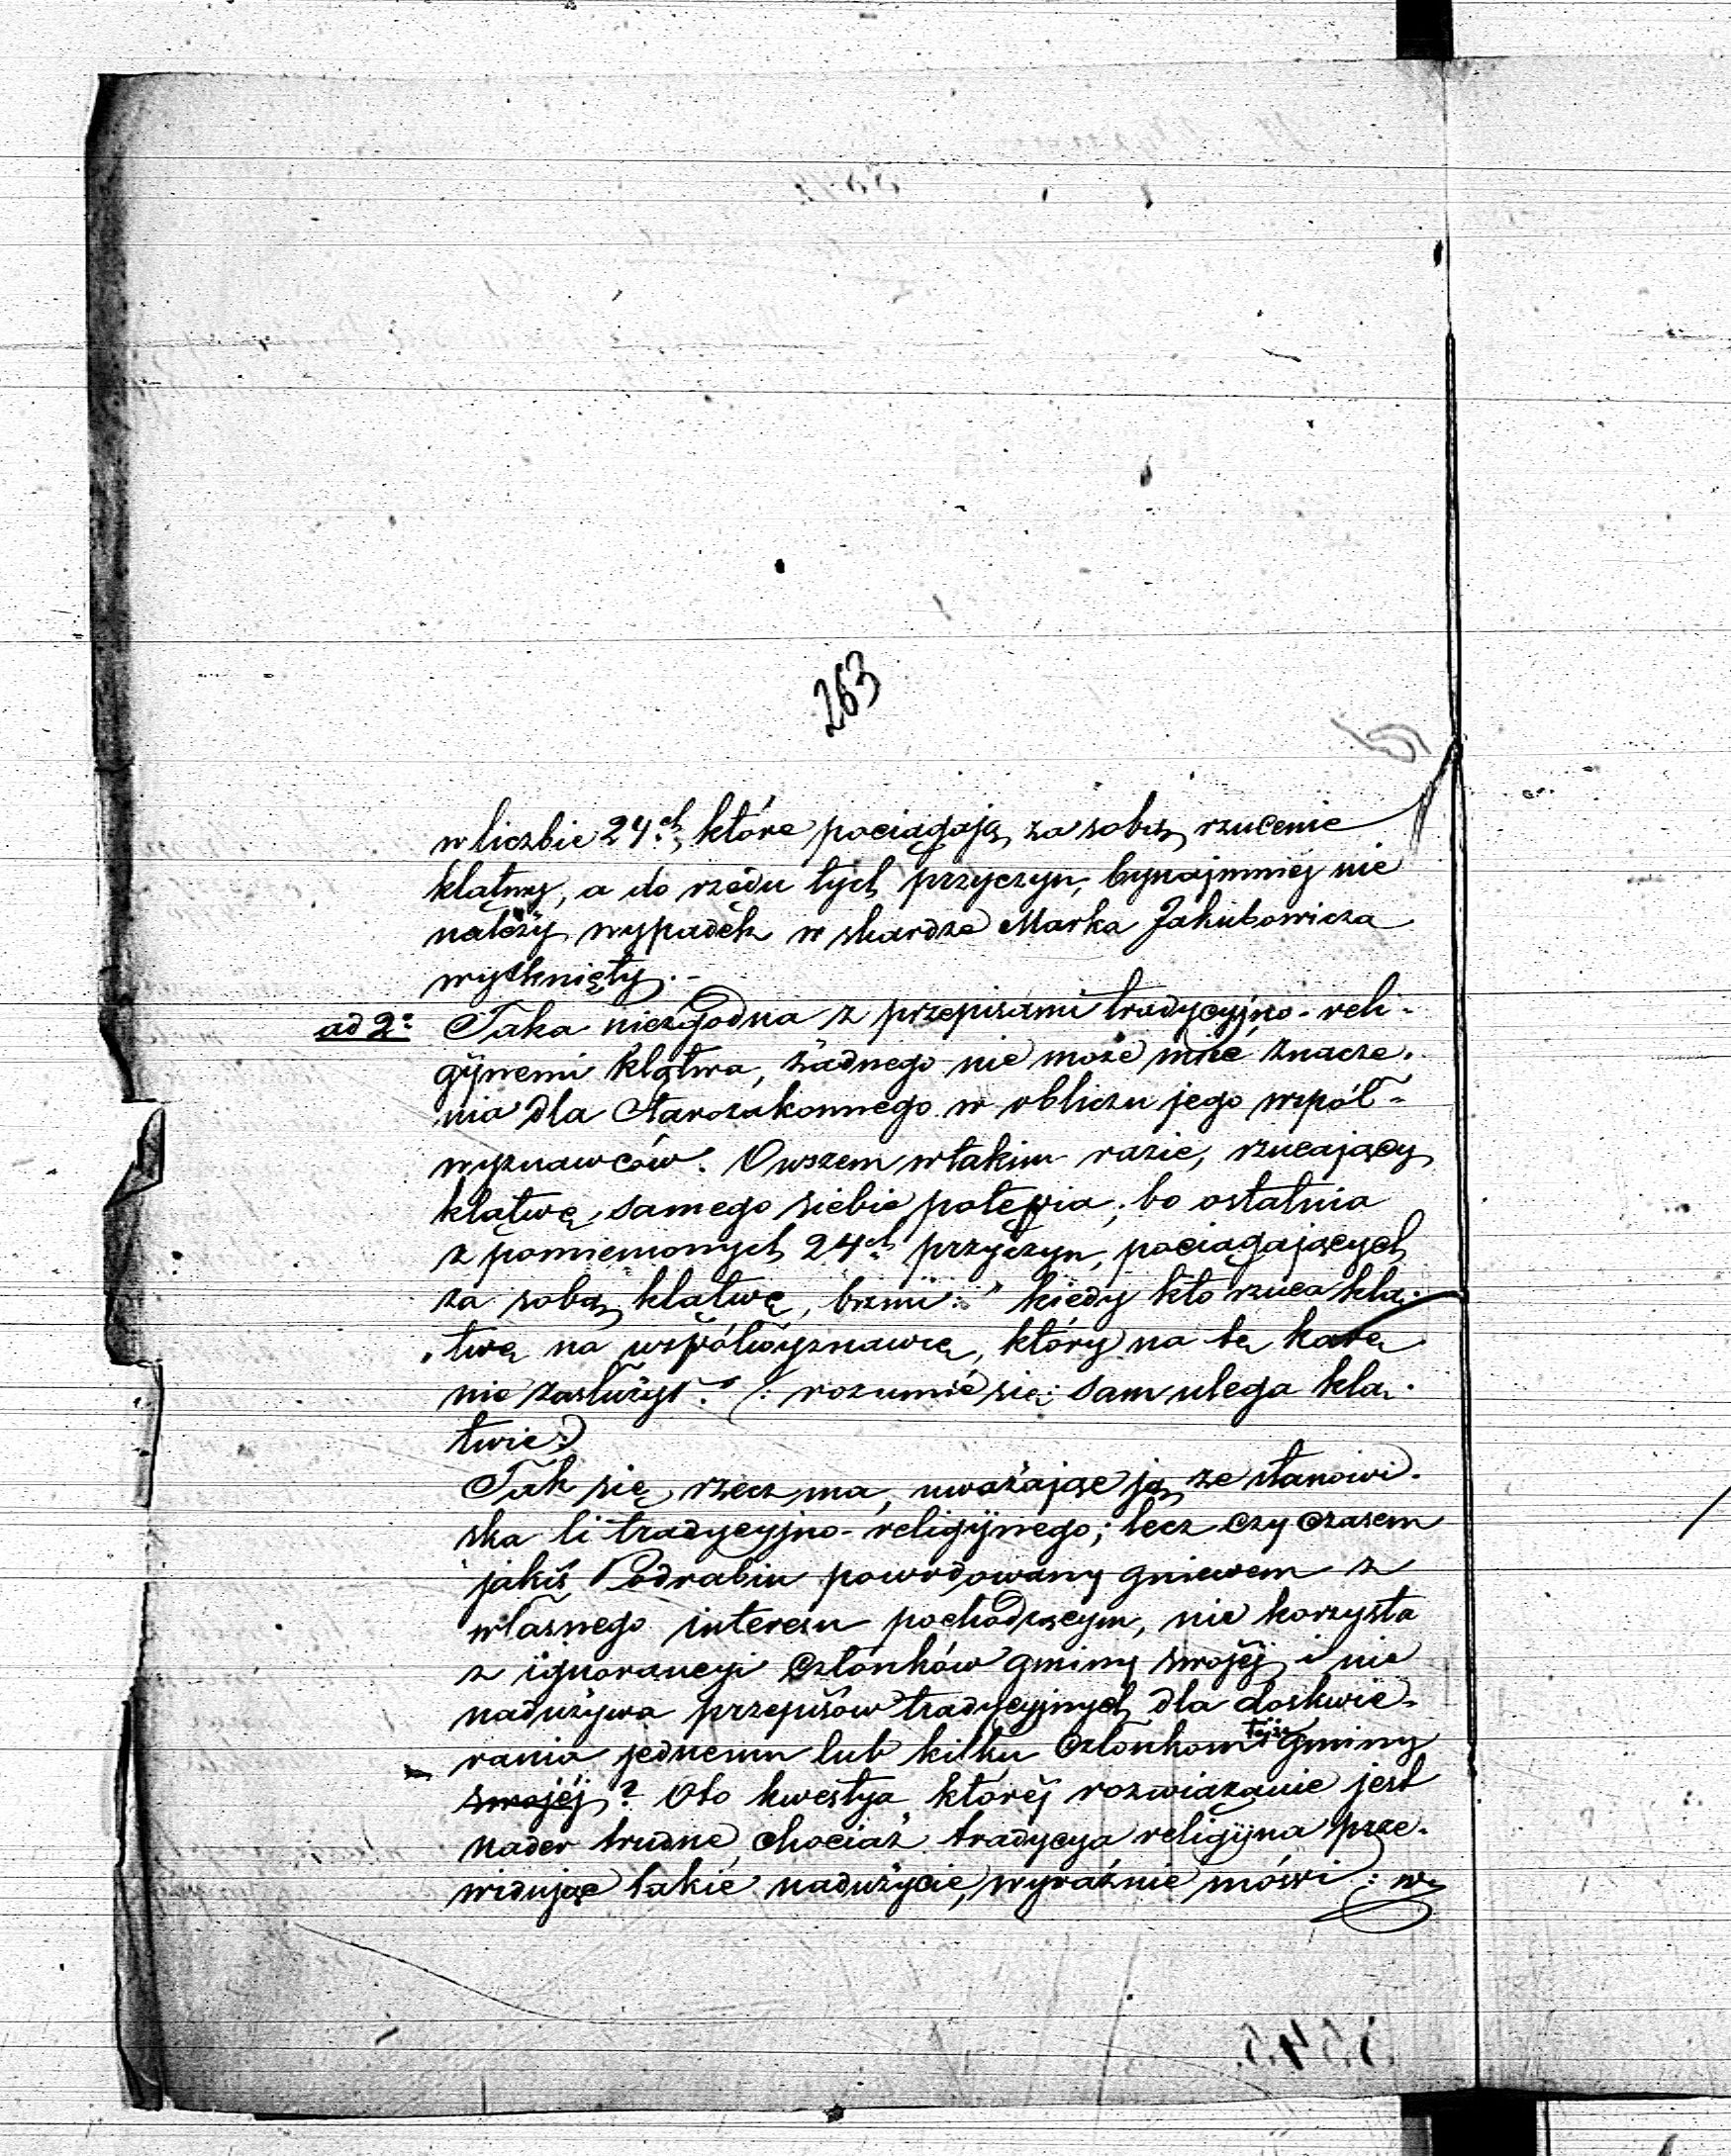 263
w liczbie 24ch, które pociągają za sobą rzucenie
klątwy, a do rzędu tych przyczyn, bynajmniej nie
należy wypadek w skardze Marka Jakubowicza
wytknięty.-
ad 2o Taka niezgodna z przepisami tradycyjno-reli-
gijnemi klątwa, żadnego nie może mieć znacze-
nia dla Starozakonnego w obliczu jego współ-
wyznawców. Owszem w takim razie, rzucający
klątwę, samego siebie potępia; bo ostatnia
z pomienionych 24ch przyczyn, pociągających
za sobą klątwę, brzmi: "kiedy kto rzuca klą-
"twę na współwyznawcę, który na tę karę
nie zasłużył." (: rozumie się: sam ulega klą-
twie:)
Tak się rzecz ma, uważając ją ze stanowi-
ska li tradycyjno-religijnego; lecz czy czasem
jakiś Podrabin powodowany gniewem z
własnego interesu pochodzącym, nie korzysta
z ignorancyi członków gminy swojéj i nie
nadużywa przepisów tradycyjnych dla doskwie-
rania jednemu lub kilku członkom tejże gminy
swojéj? Oto kwestya któréj rozwiązanie jest
nader trudne, chociaż tradycya religijna prze-
widując takie nadużycie, wyraźnie mówi: w
3545.